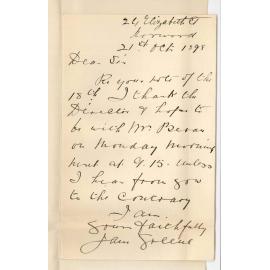 24 Elizabeth St
Norwood
21st Oct. 1898
Dear Sir
Re your note of the
18th I thank the
Director & hope to
be with Mr. Bevan
on Monday morning
next at 9.15. unless
I hear from you
to the Contrary
I am
Yours faithfully
Jam Greene